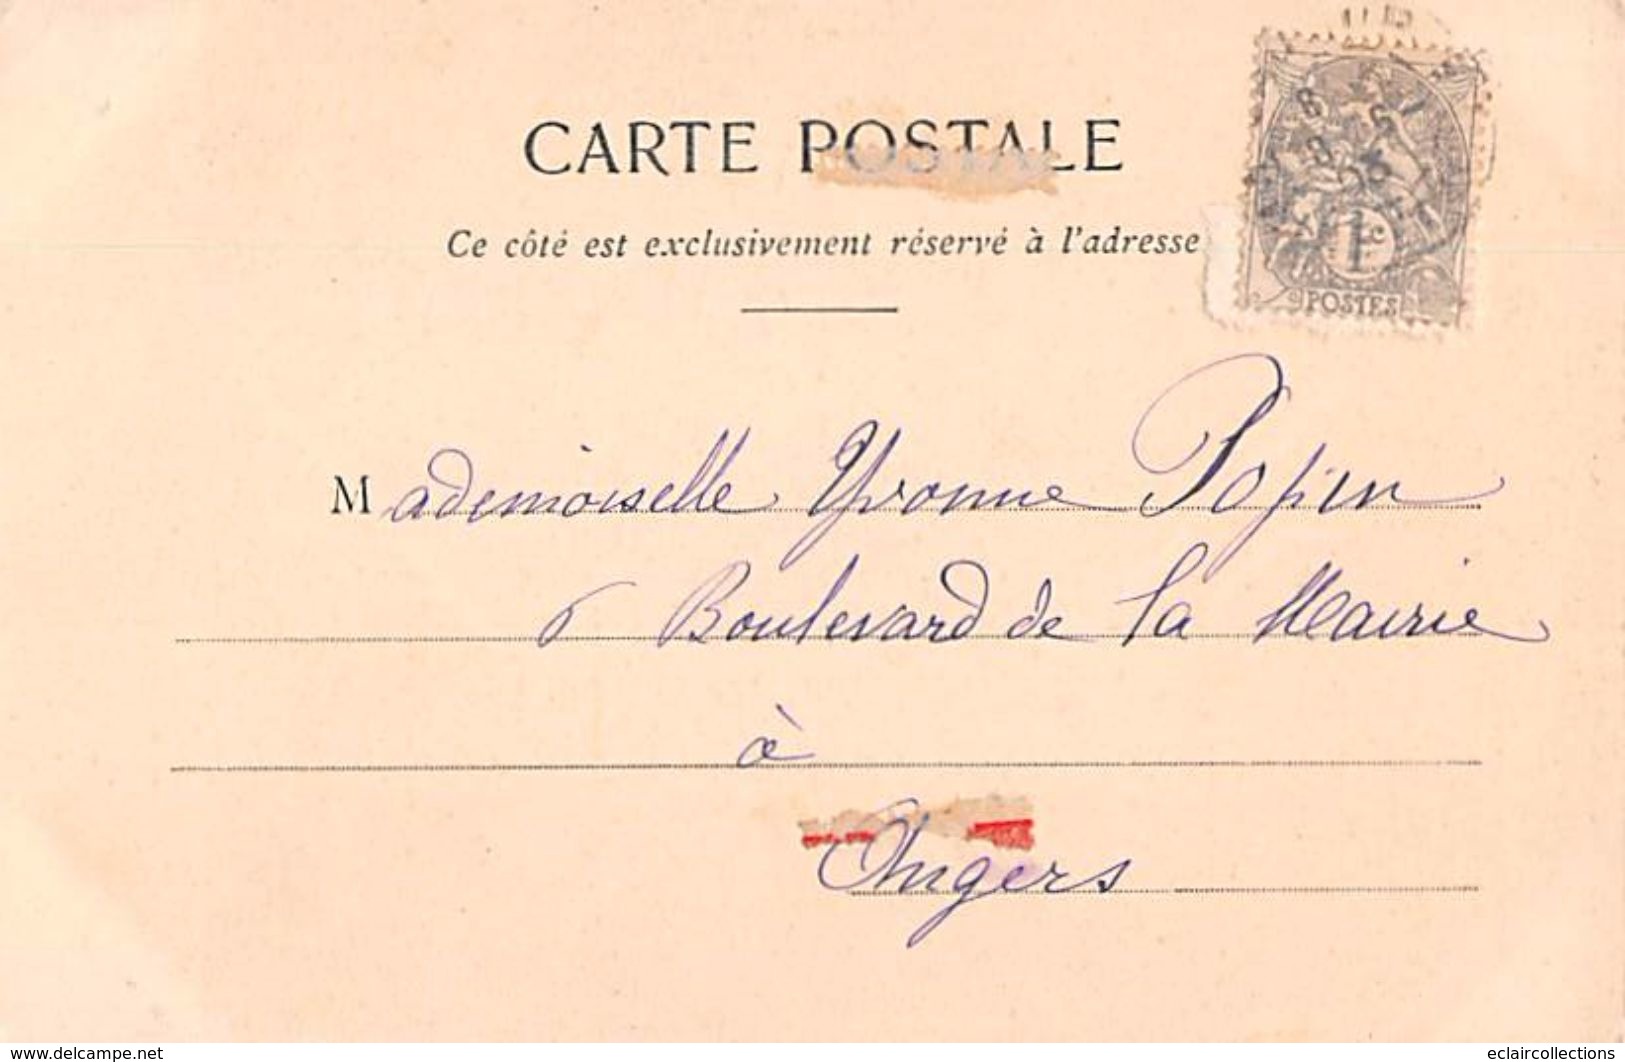 CARTE POSTALE
Ce côté est exclusivement réservé à l'adresse
1c
POSTES
Mademoiselle Yvonne
6 Boulevard de la Mairie
à
Angers
www.delcampe.net
eclaircollections